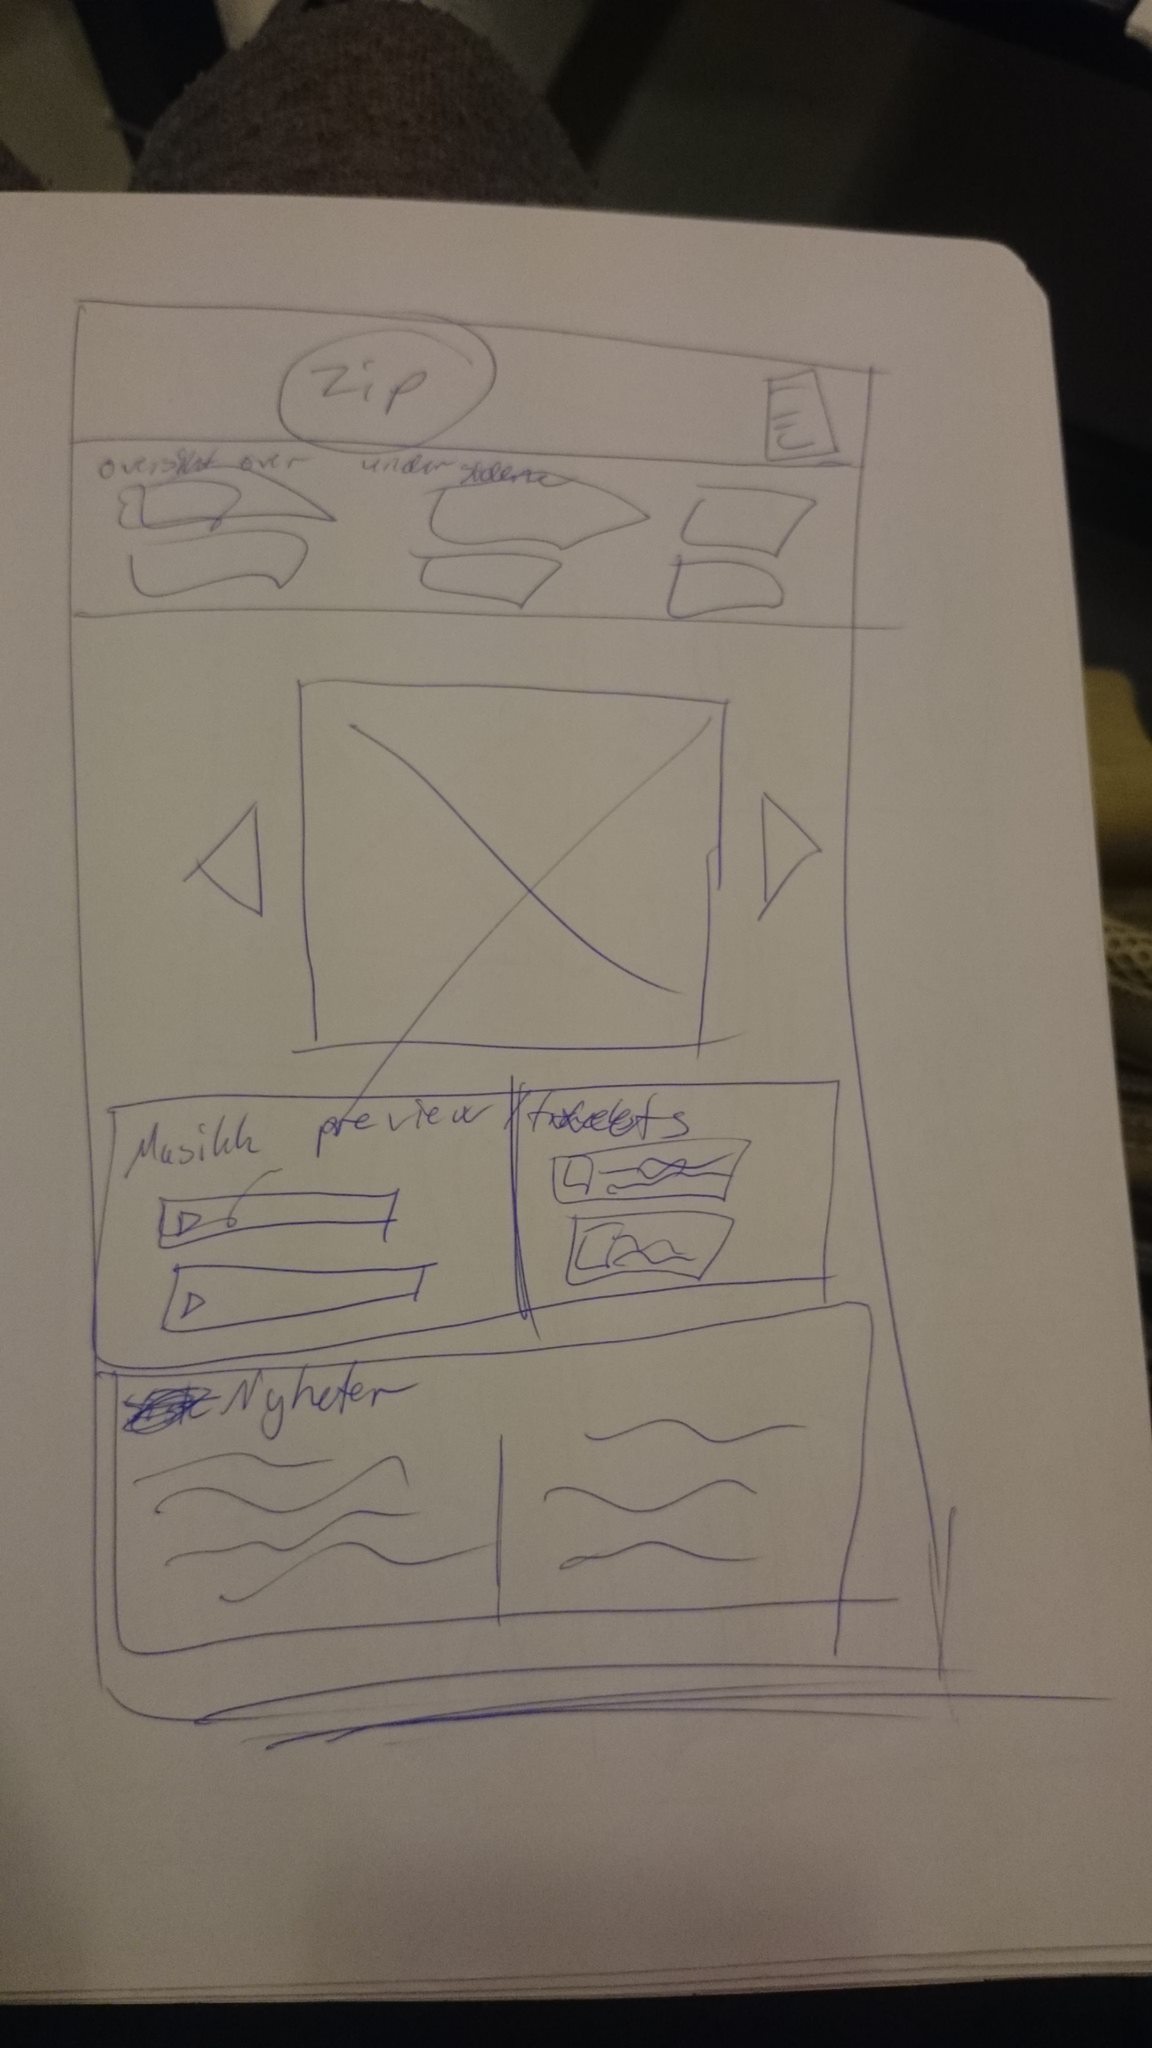 Zip
oversikt over undersidene
Musikk preview
tweets
Nyheter